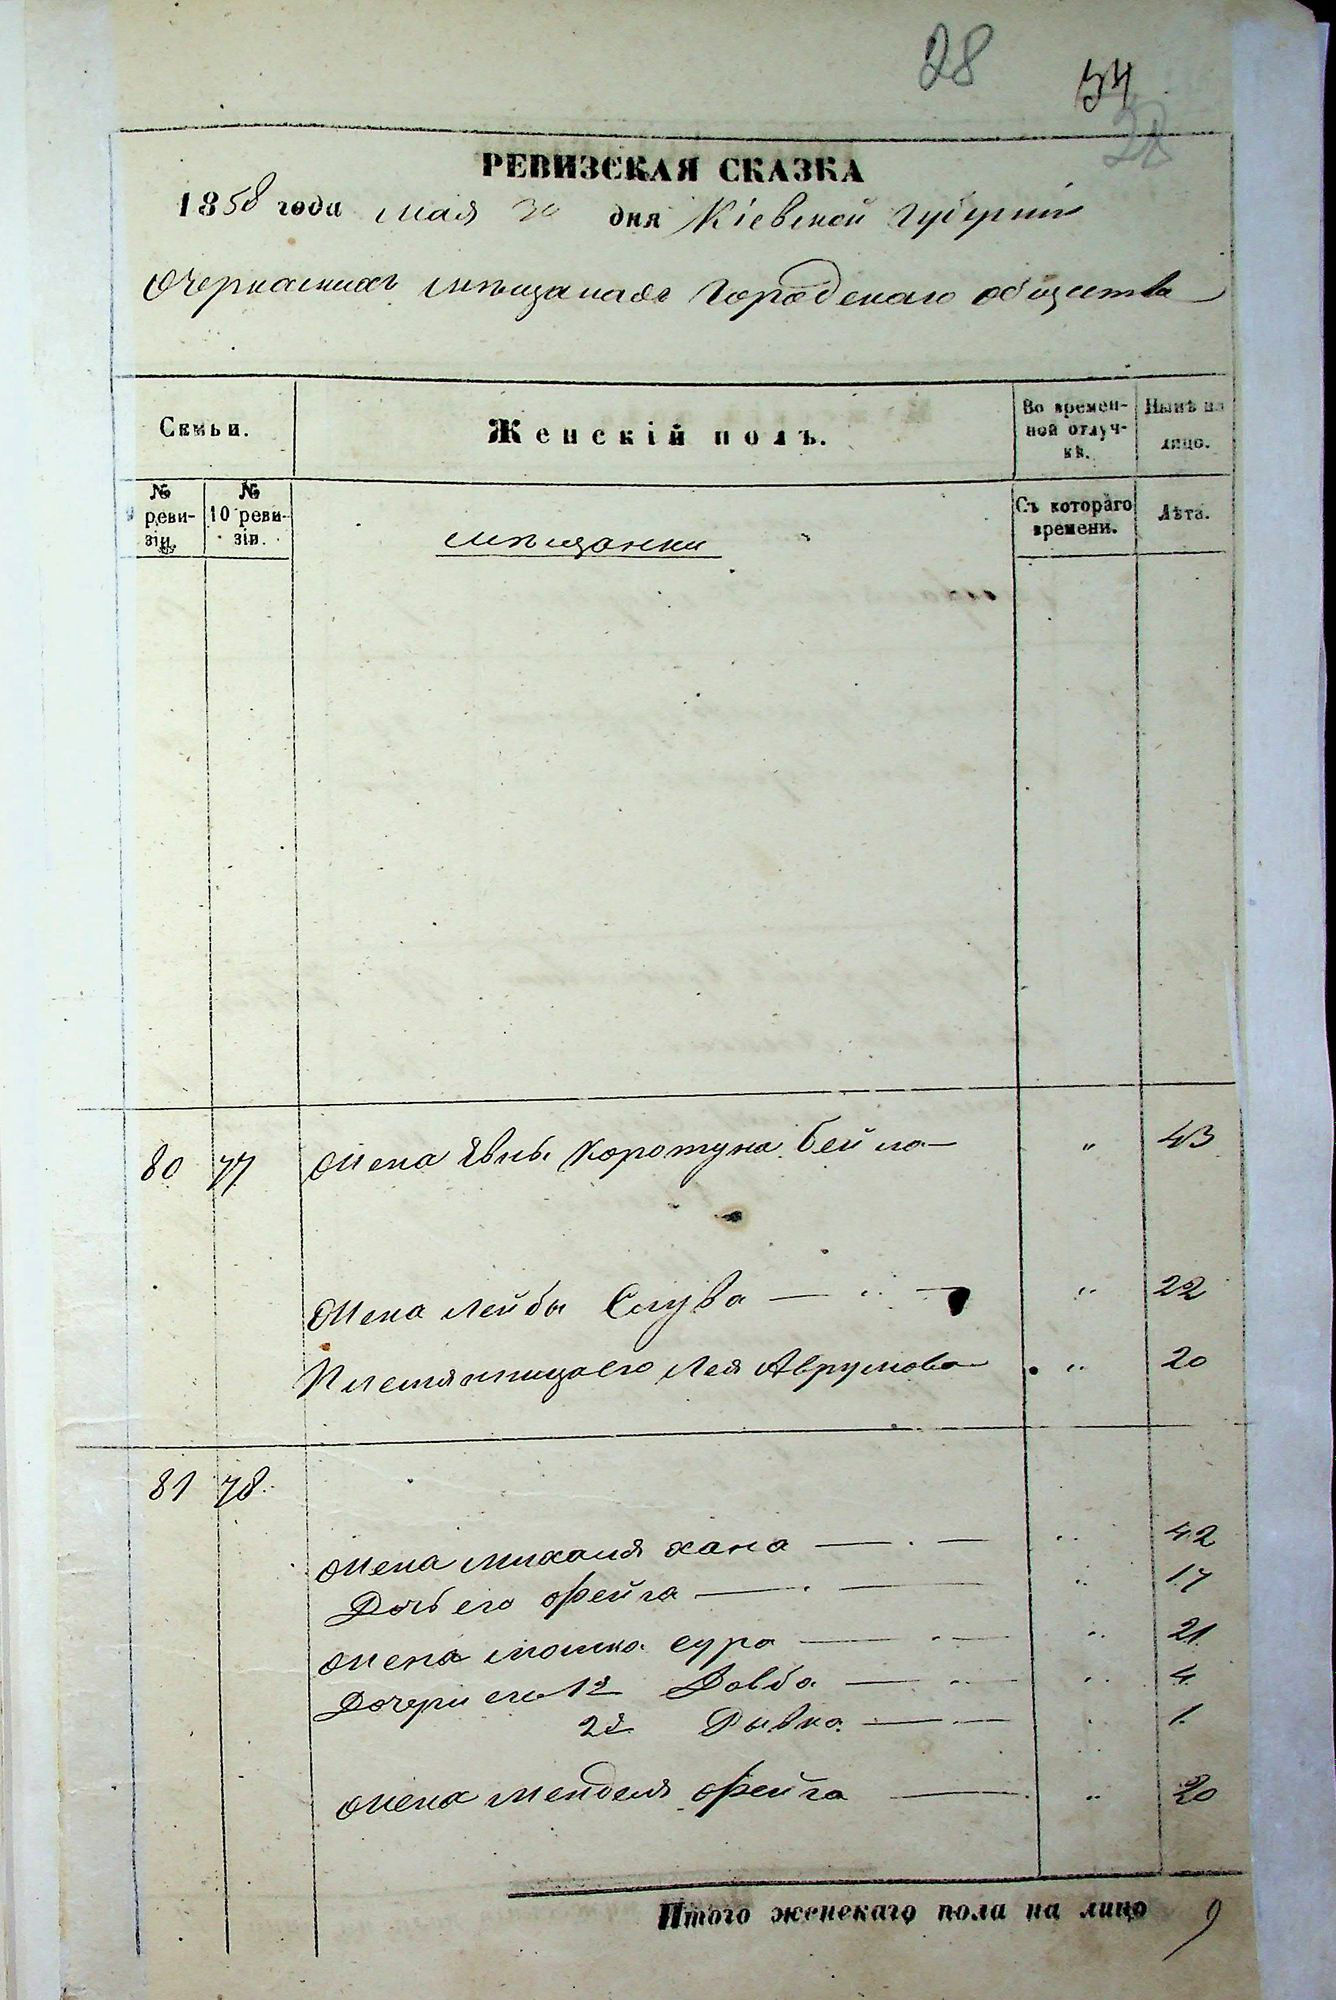 28
54
28
РЕВИЗСКАЯ СКАЗКА
1858 года мая 30 дня Кіевской Губерніи
О черкаскихъ мѣщанахъ Городскаго общества
Семьи.
Женскій полъ.
Во времен-
ной отлуч-
кѣ.
Нынѣ на
лицо.
№
ревизіи.
№
10 ревизіи.
мѣщанки
Съ котораго
времени.
Лѣта.
80 77 Жена Явны Коротуна Бейла — " 43
Жена Лейбы Слува — " — " 22
Племянница его Лея Аврумова — " 20
81 78.
Жена Михаля Хана — . — " 42
Дочь его Фейга — . — " 17
Жена Мошка Сура — " — " 21.
Дочери его 1я Довба — " — " 4
2я Рывка — . — " 1.
Жена Менделя Фейга — . " 20
Итого женскаго пола на лицо 9